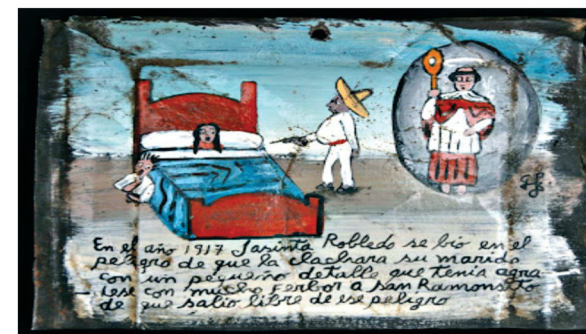 En el año 1917 Jasinta Robledo se bio en el
peligro de que la clachara su marido
con un pequeño detalle que tenia agra-
- dese con mucho ferbor a san Ramonsito
de que salio libre de ese peligro